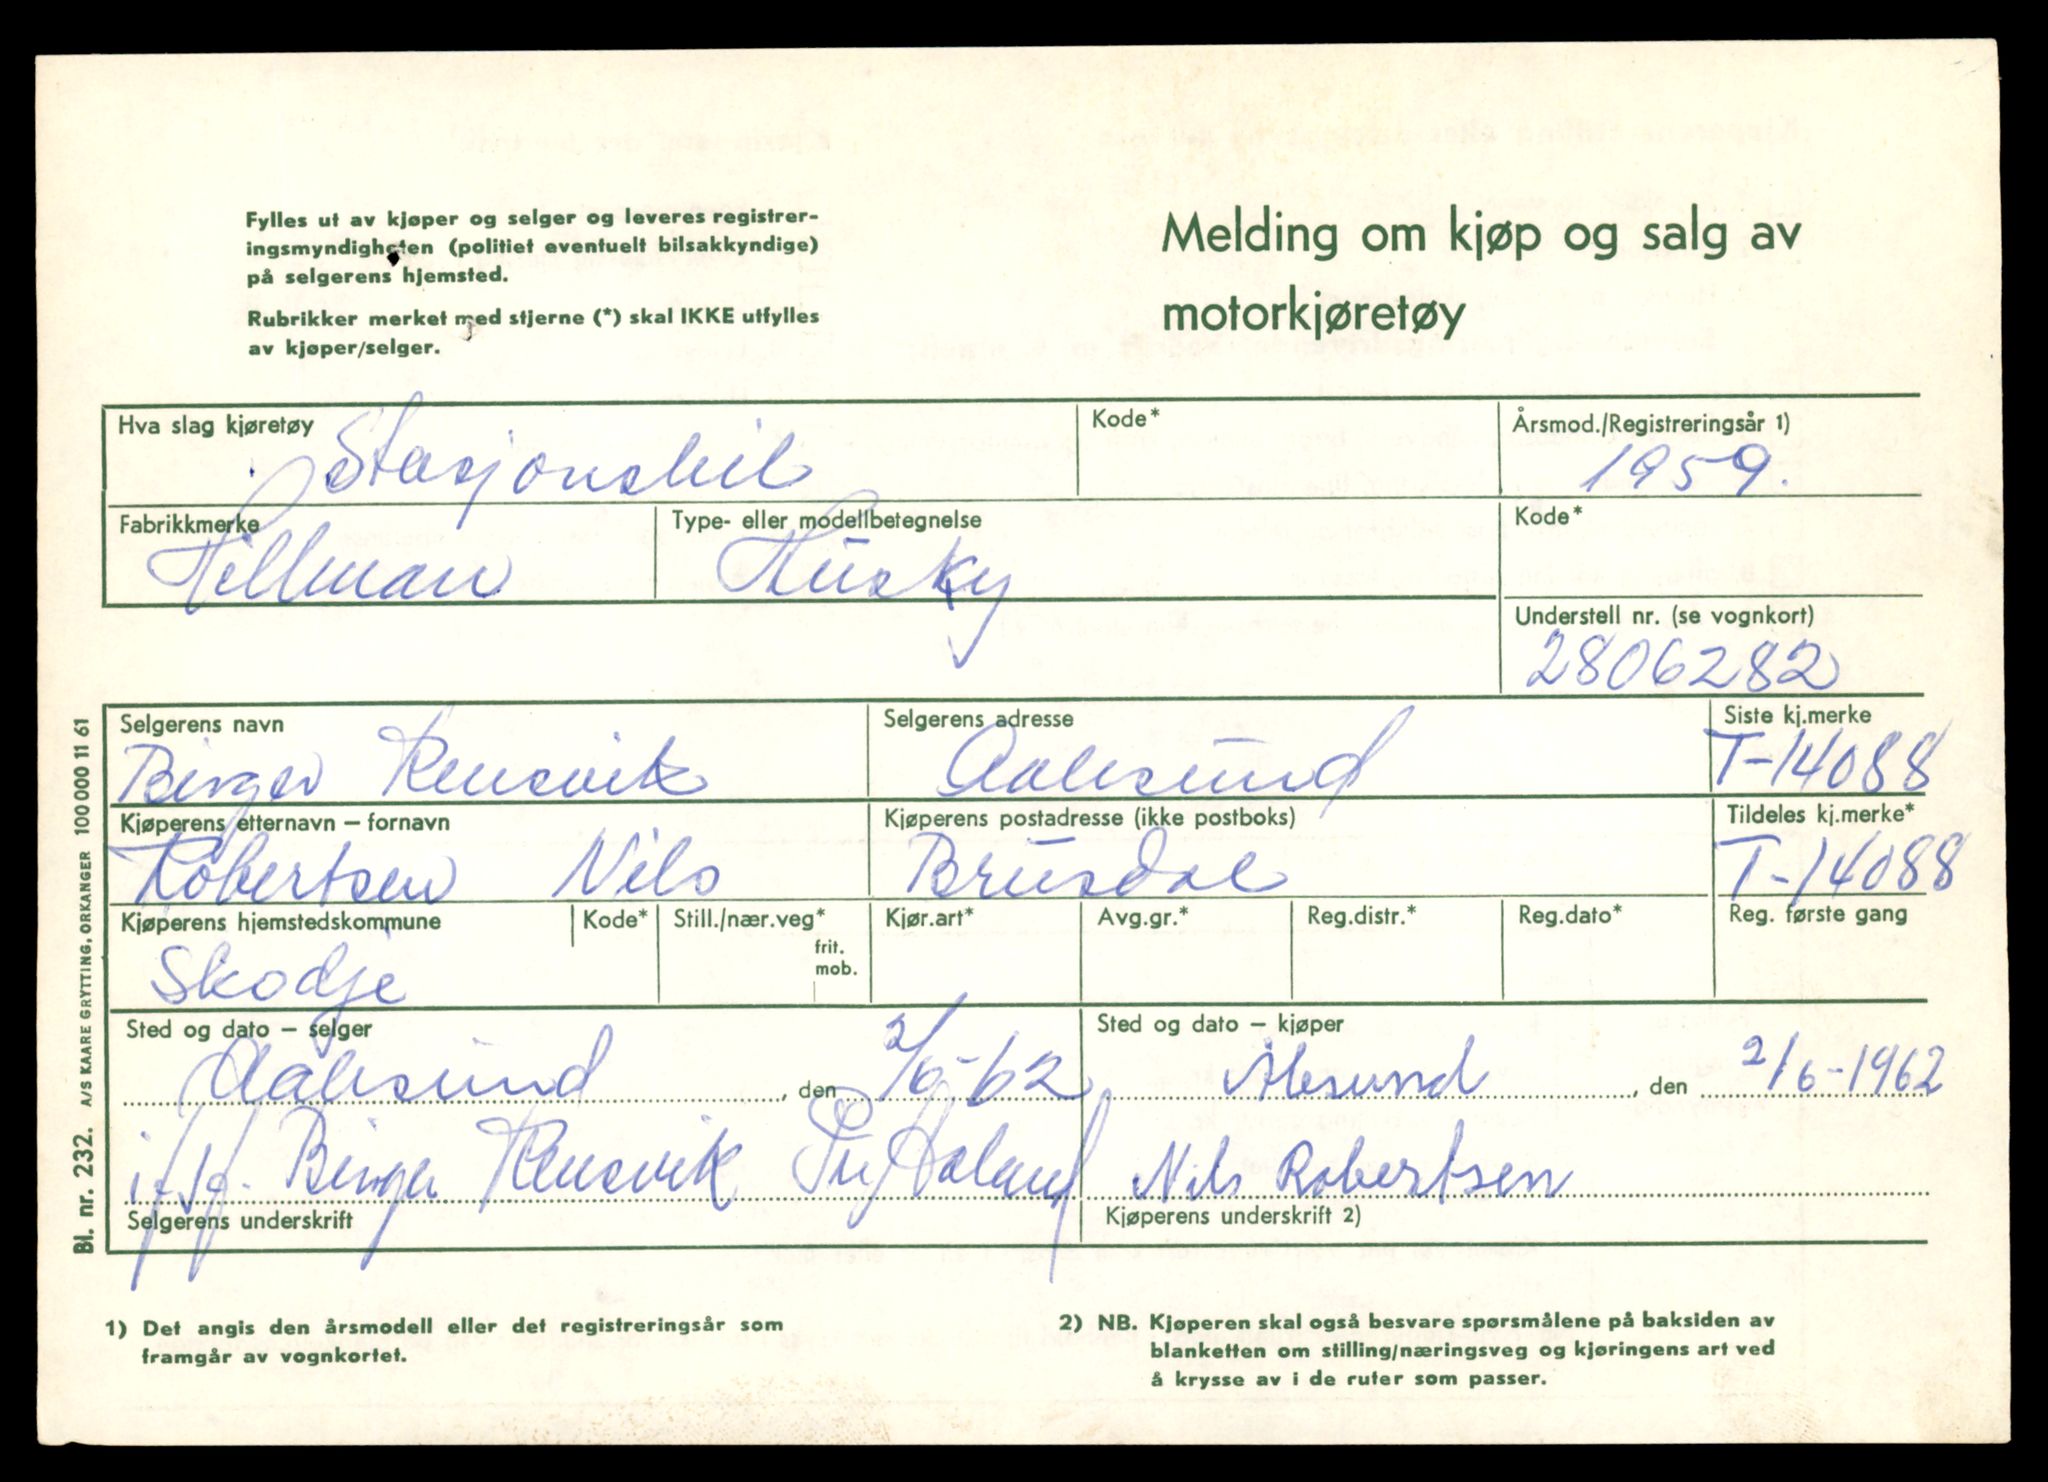 Fylles ut av kjøper og selger og leveres registrer-
ingsmyndigheten (politiet eventuelt bilsakkyndige)
på selgerens hjemsted.
Rubrikker merket med stjerne (*) skal IKKE utfylles
av kjøper/selger.
Melding om kjøp og salg av
motorkjøretøy
Hva slag kjøretøy
Stasjonsbil
Kode*
Årsmod./Registreringsår 1)
1959.
Fabrikkmerke
Hillman
Type- eller modellbetegnelse
Husky
Kode*
Understell nr. (se vognkort)
2806282
Selgerens navn
Birger Rensvik
Selgerens adresse
Aalesund
Siste kj.merke
T-14088
Kjøperens etternavn – fornavn
Robertsen Nils
Kjøperens postadresse (ikke postboks)
Brusdal
Tildeles kj.merke*
T-14088
Kjøperens hjemstedskommune
Skodje
Kode*
Still./nær.veg*
frit.
mob.
Kjør.art*
Avg.gr.*
Reg.distr.*
Reg.dato*
Reg. første gang
Sted og dato – selger
Aalesund, den 2/6-62
Sted og dato – kjøper
Ålesund, den 2/6-1962
Birger Rensvik
Selgerens underskrift
Nils Robertsen
Kjøperens underskrift 2)
1) Det angis den årsmodell eller det registreringsår som
framgår av vognkortet.
2) NB. Kjøperen skal også besvare spørsmålene på baksiden av
blanketten om stilling/næringsveg og kjøringens art ved
å krysse av i de ruter som passer.
Bl. nr. 232. A/S KAARE GRYTTING, ORKANGER 100 000 11 61